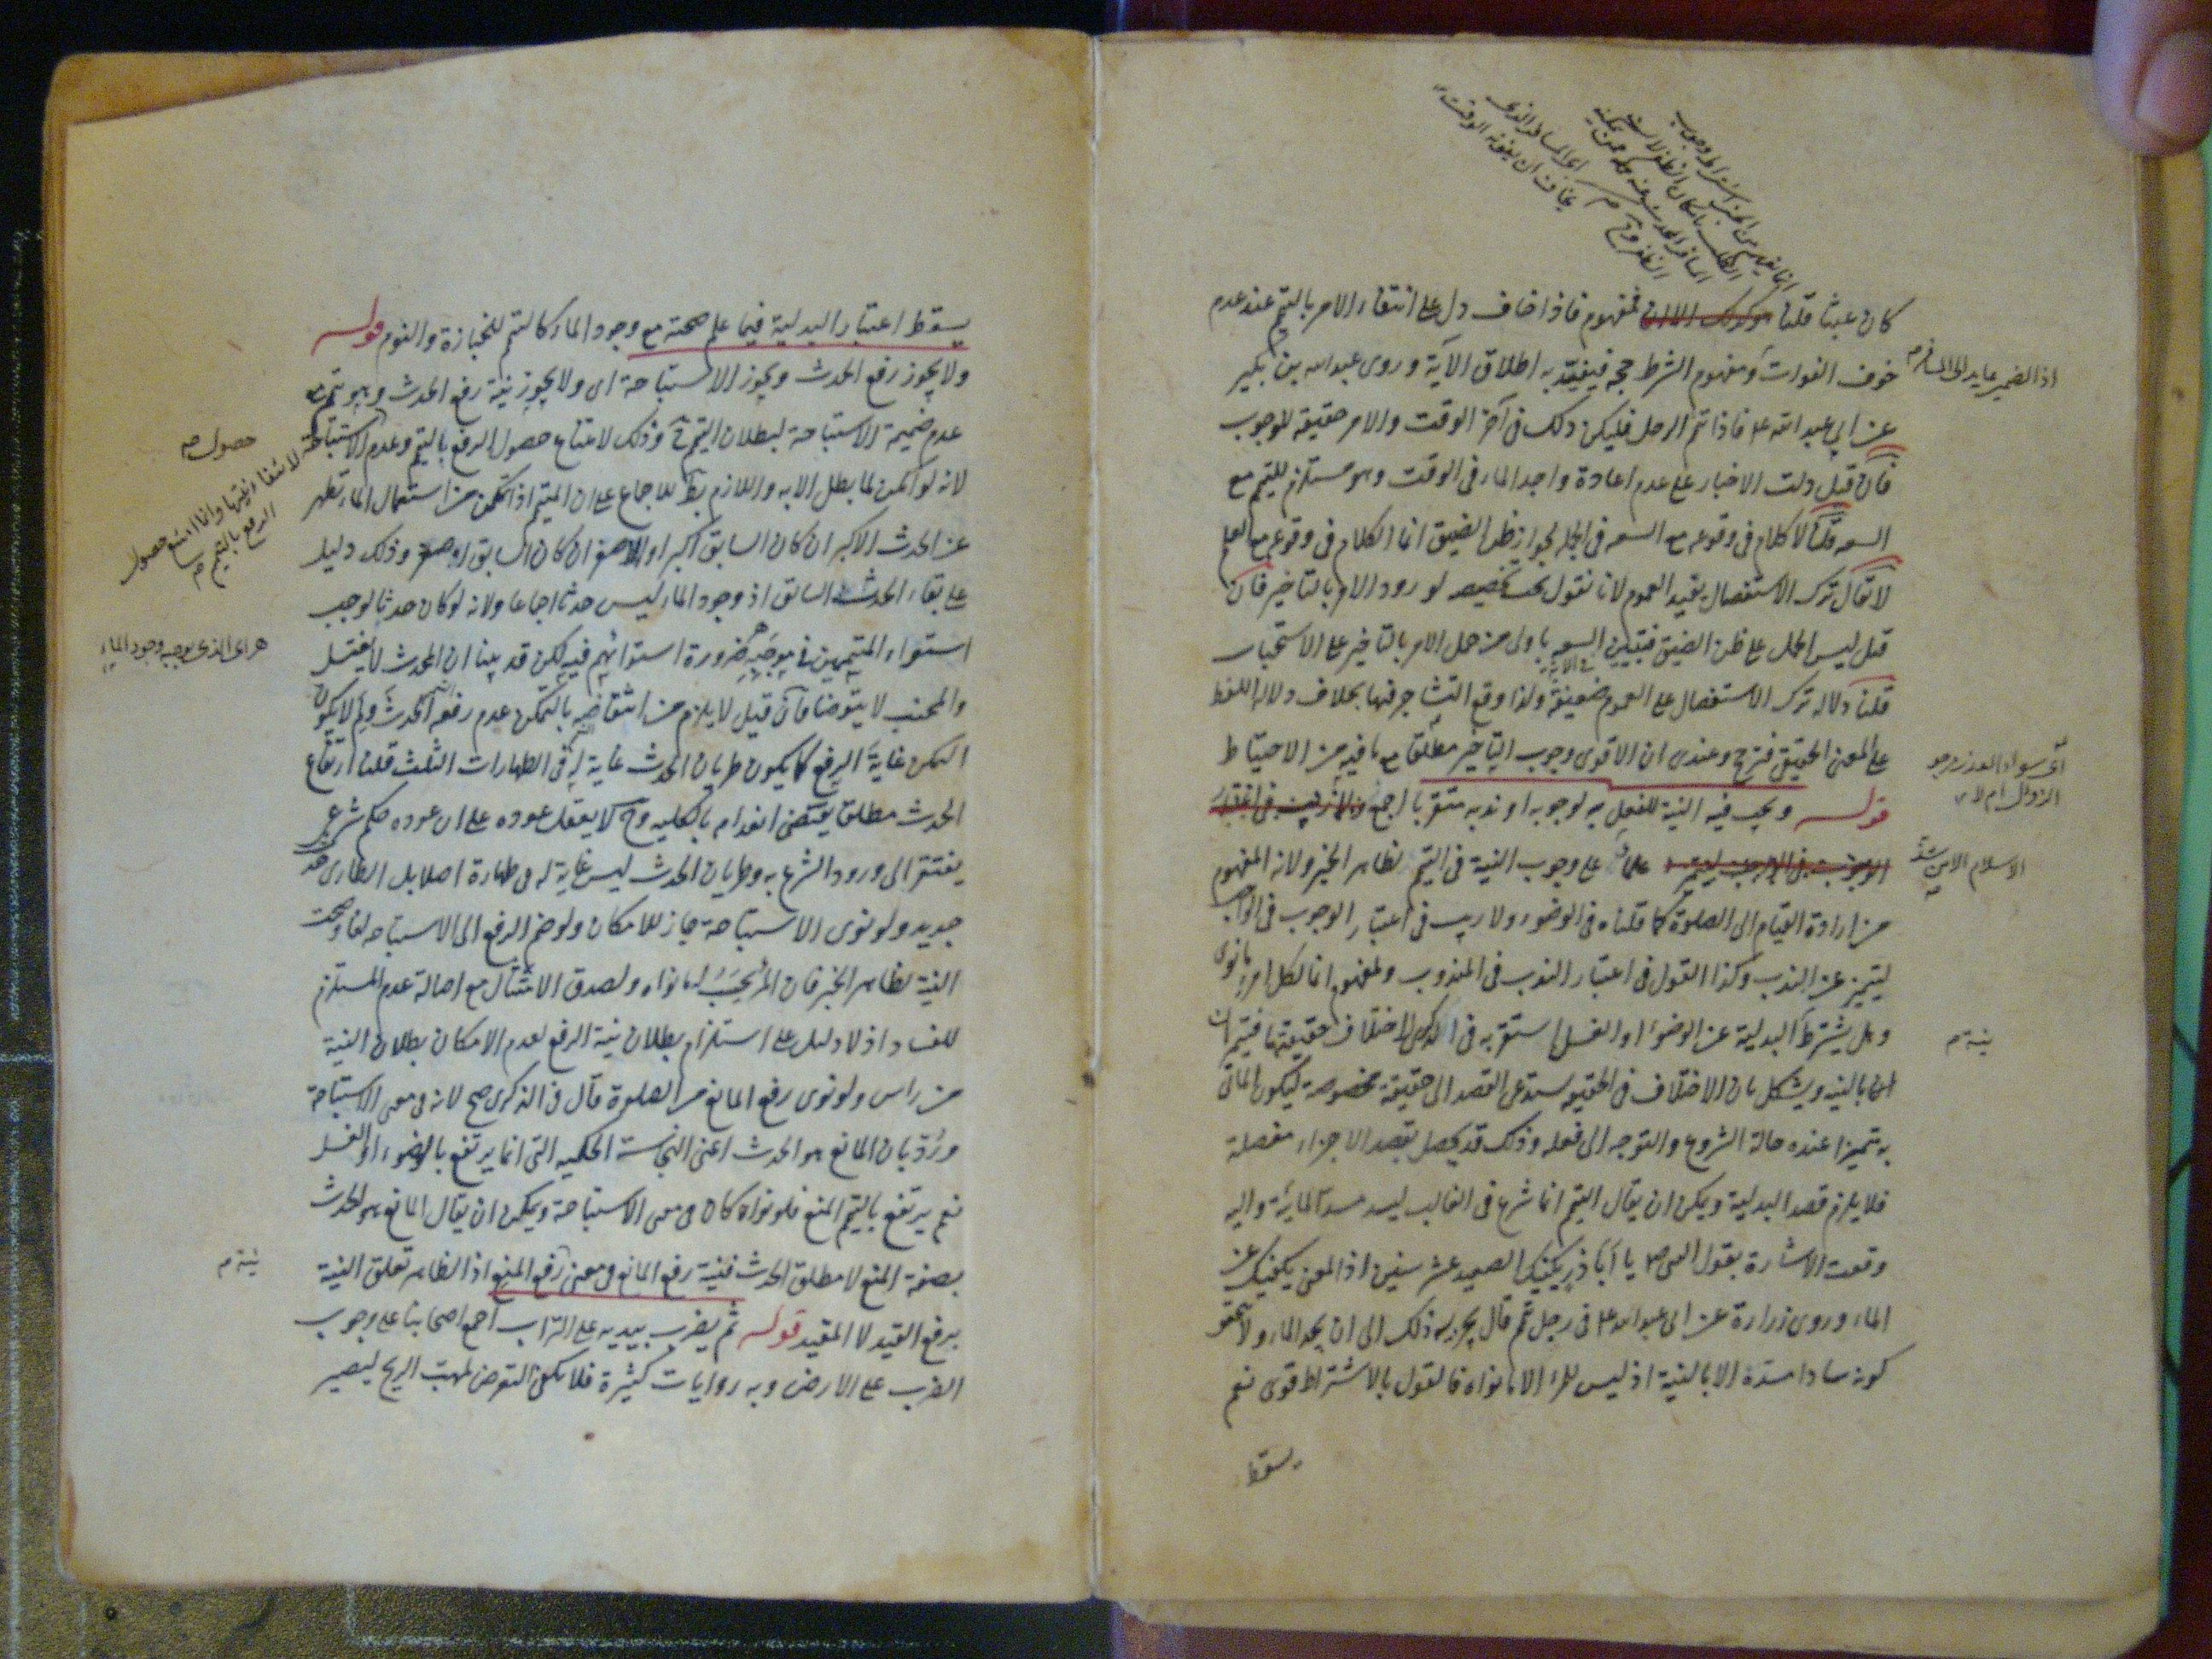 كان عبثا قلنا فمفهوم فاذا خاف دل على انتفاء الامر بالتيمم عند عدم
خوف الفوات ومفهوم الشرط حجة فيقيد به اطلاق الآية وروى عبد الله بن بكير
عن ابي عبد الله ع فاذا تيمم الرجل فليكن ذلك في آخر الوقت والامر حقيقة للوجوب
فان قيل دلت الاخبار على عدم اعادة واجد الماء في الوقت وهو مستلزم للتيمم مع
السعه قلنا لا كلام في وقوعه مع السعه في الجملة لجواز ظن الضيق انما الكلام في وقوعه مع العلم
لا يقال ترك الاستفصال يفيد العموم لانا نقول يجب تخصيصه لورود الامر بالتاخير فان
قيل ليس الحمل على ظن الضيق فتبين السعه باولى من حمل الامر بالتاخير على الاستحباب
قلنا دلالة ترك الاستفصال على العموم ضعيفة ولذا وقع التشاجر فيها بخلاف دلالة اللفظ
على المعنى الحقيقي فترجح وعندي ان الاقوى وجوب التاخير مطلقا مع ما فيه من الاحتياط
قوله ويجب فيه النية للفعل لوجوبه او ندبه متقربا اجمع
على وجوب النية في التيمم لظاهر الخبر ولانه المفهوم
من ارادة القيام الى الصلوة كما قلناه في الوضوء ولا ريب في اعتبار الوجوب في الواجب
ليتميز عن الندب وكذا القول في اعتبار الندب في المندوب ولمفهوم انما لكل امرئ ما نوى
وهل يشترط البدلية عن الوضوء او الغسل استقربه في الذكرى لاختلاف حقيقتهما فيتميزان
بالنية ويشكل بان الاختلاف في الحقيقة يستدعي القصد الى حقيقة مخصوصة ليكون الماتى
به متميزا عنده حالة الشروع والتوجه الى فعله وذلك قد يحصل بقصد الاجزاء مفصلة
فلا يلزم قصد البدلية ويمكن ان يقال التيمم انما شرع في الغالب ليسد مسد المائية واليه
وقعت الاشارة بقول النبي ص يا أبا ذر يكفيك الصعيد عشر سنين اذ المعنى يكفيك عن
الماء وروى زرارة عن ابي عبد الله ع في رجل تيمم قال يجزيه ذلك الى ان يجد الماء ولا يتحقق
كونه سادا مسده الا بالنية اذ ليس للمرء الا ما نواه فالقول بالاشتراط قوى نعم
يسقط
اذ الضمير عايد الى المسافر م
نية م
يسقط اعتبار البدلية فيما علم صحته مع وجود الماء كالتيمم للجنازة والنوم قوله
ولا يجوز رفع الحدث ويجوز الاستباحة اى ولا يجوز نية رفع الحدث وهو متجه مع
عدم ضميمة الاستباحة لبطلان التيمم ح وذلك لامتناع حصول الرفع بالتيمم وعدم الاستباحة
لانه لو امكن لما بطل الا به واللازم بط للاجماع على ان المتيمم اذا تمكن من استعمال الماء تطهر
عن الحدث الاكبر ان كان السابق اكبر او الاصغر ان كان السابق اصغر وذلك دليل
على بقاء الحدث السابق اذ وجود الماء ليس حدثا اجماعا ولانه لو كان حدثا لوجب
استواء المتيممين في موجبه ضرورة استوائهم فيه لكن قد بينا ان المحدث لا يغتسل
والمجنب لا يتوضأ فان قيل لا يلزم من انتقاضه بالتمكن عدم رفعه الحدث ولم لا يكون
التمكن غاية الرفع كما يكون طريان الحدث غاية له في الطهارات الثلث قلنا ارتفاع
الحدث مطلقا يقتضي انعدامه بالكلية وح لا يعقل عوده على ان عوده حكم شرعي
يفتقر الى ورود الشرع به وطريان الحدث ليس غاية له في طهارة اصلا بل الطارى حدث
جديد ولو نوى الاستباحة جاز للامكان ولو ضم الرفع الى الاستباحة لغا وصحت
النية لظاهر الخبر فان المرء يحسب له ما نواه ولصدق الامتثال مع اصالة عدم المستلزم
للفساد اذ لا دليل على استلزام بطلان نية الرفع لعدم الامكان بطلان النية
من راس ولو نوى رفع المانع من الصلوة قال في الذكرى صح لانه في معنى الاستباحة
ورُدّ بان المانع هو الحدث اعنى النجاسة الحكمية التى انما يرتفع بالوضوء او الغسل
نعم يرتفع بالتيمم المنع فلو نواه كان في معنى الاستباحة ويمكن ان يقال المانع هو الحدث
بصفة المنع لا مطلق الحدث فنية رفع المانع في معنى رفع المنع اذ الظاهر تعلق النية
برفع القيد لا المقيد قوله ثم يضرب بيديه على التراب اجمع اصحابنا على وجوب
الضرب على الارض وبه روايات كثيرة فلا يكفى التعرض لمهب الريح ليصير
حصول م
لانتفاء نيتها وانما امتنع حصول
الرفع بالتيمم
هر اى الذى يوجبه وجود الماء
نية م